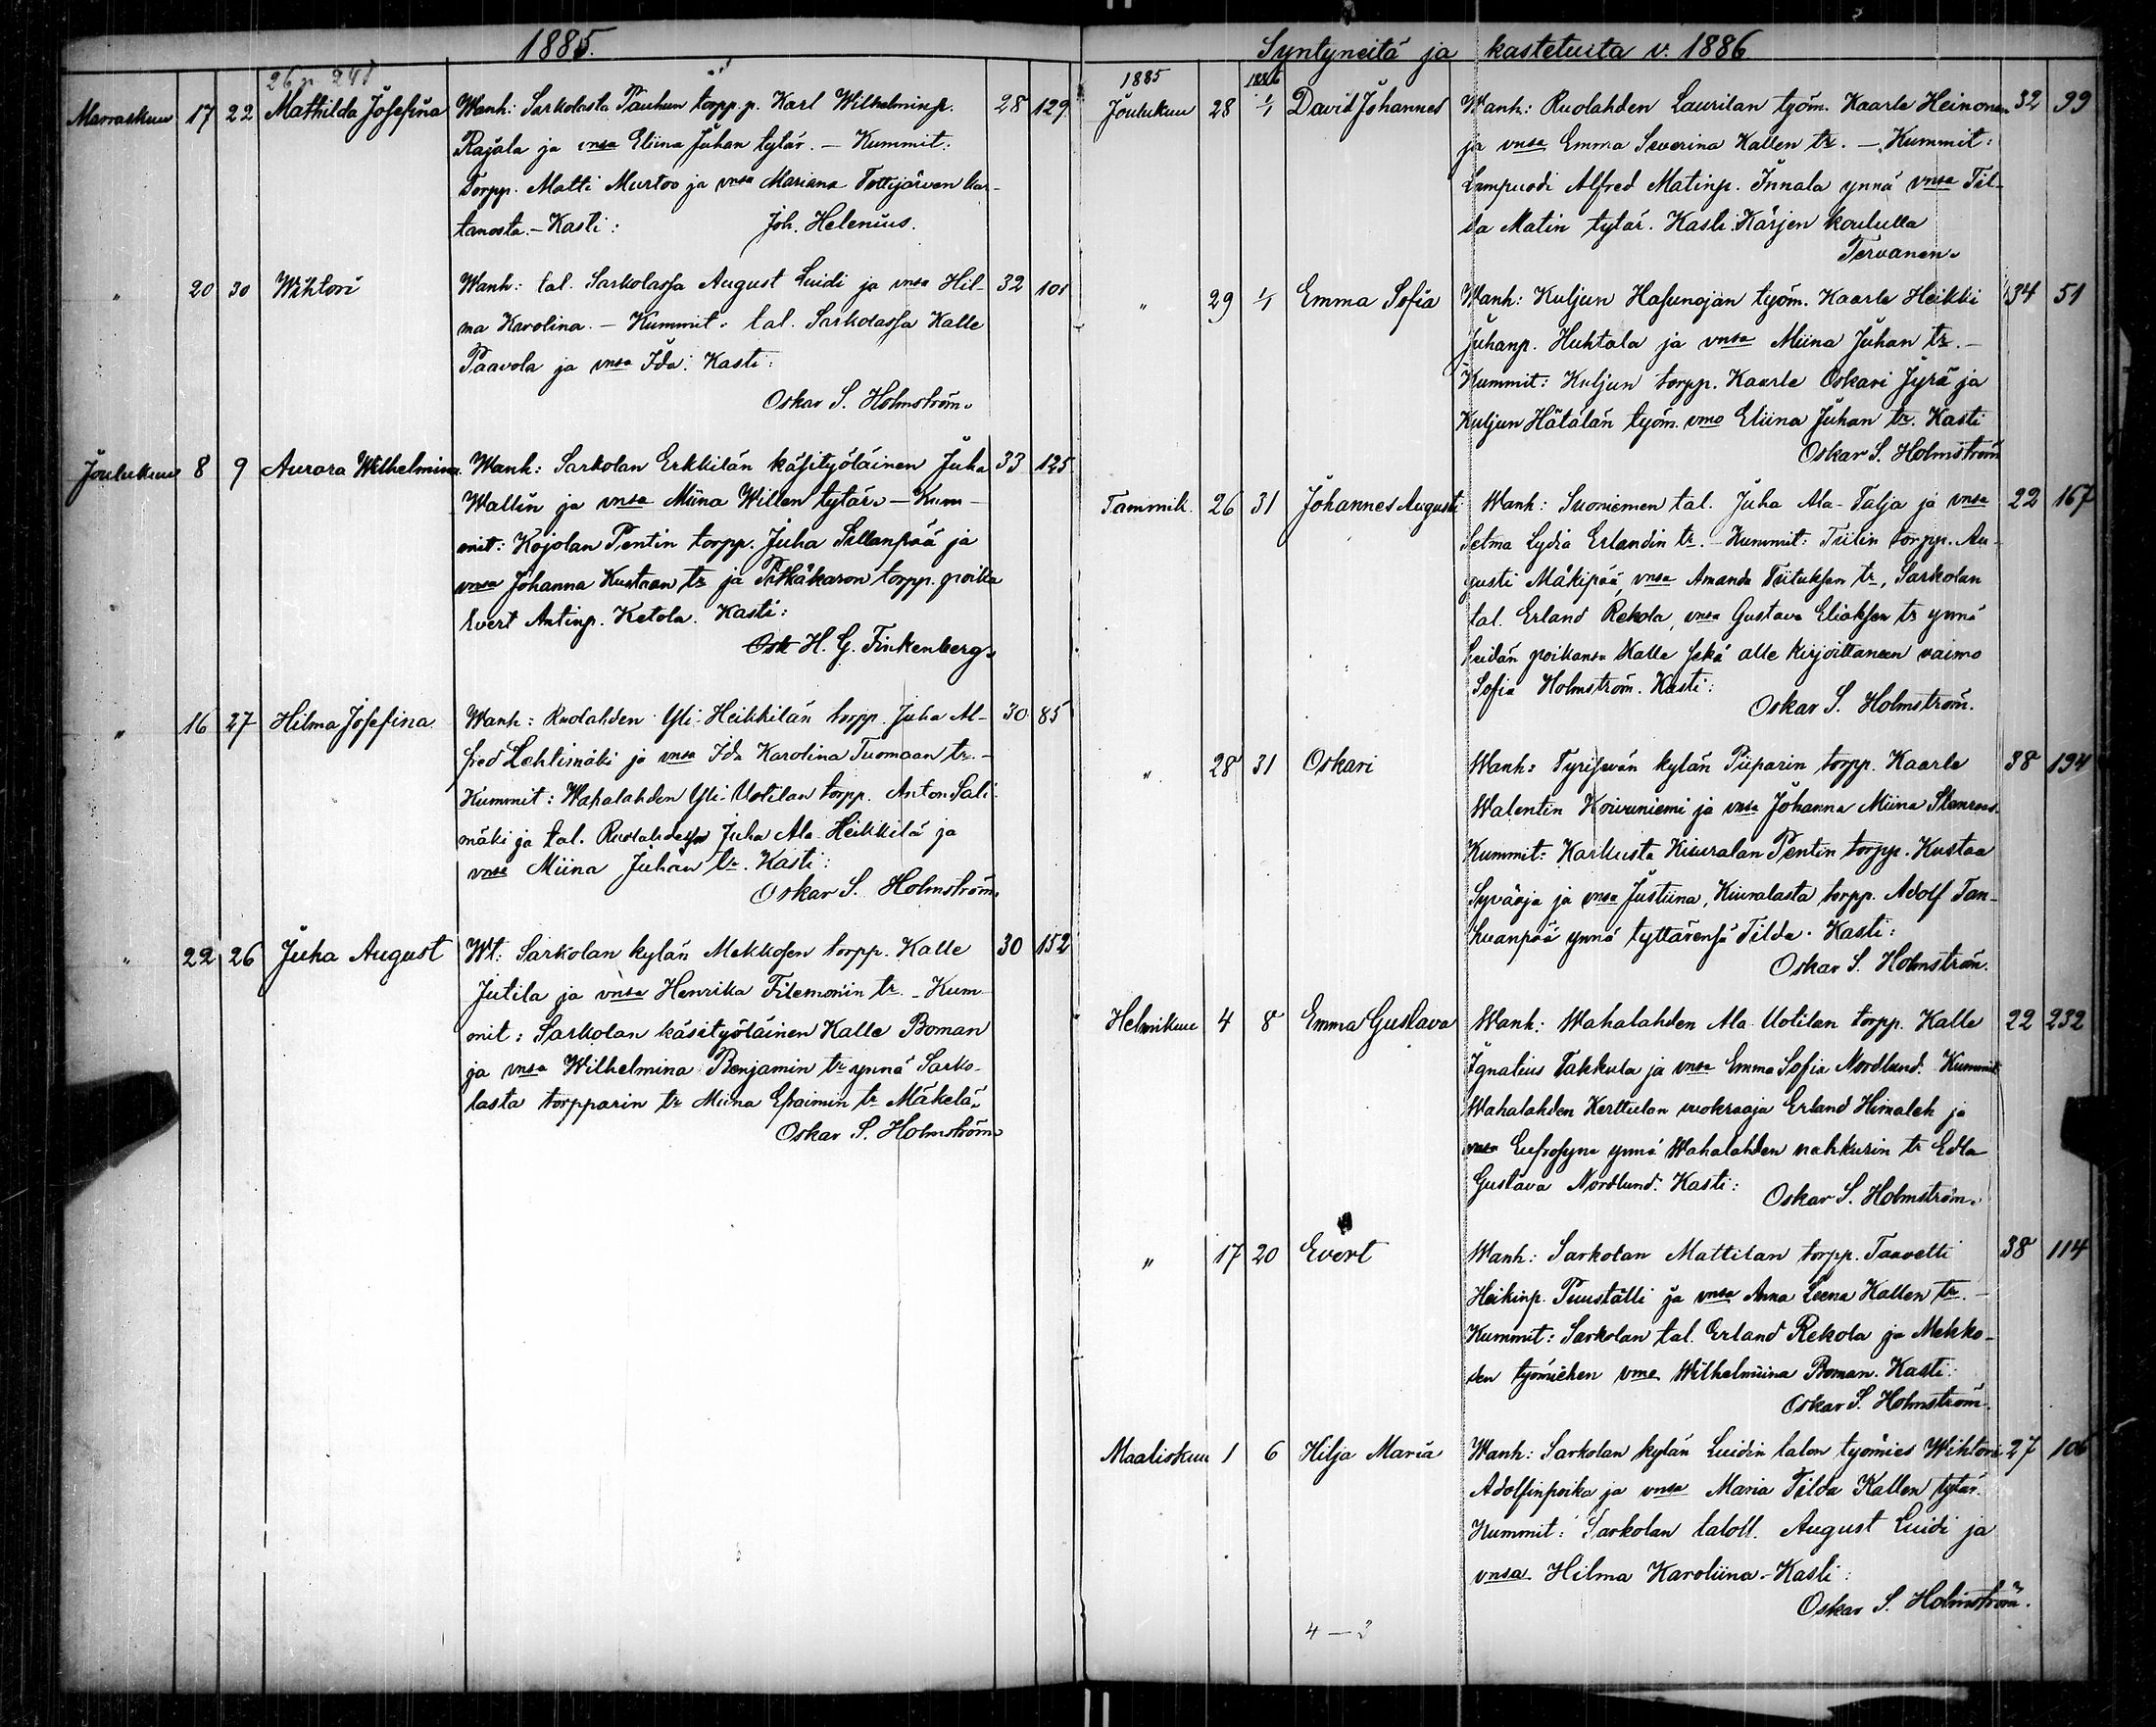 1885.
26 p. 241
Marraskuu 17 22 Mathilda Josefina Wanh: Sarkolasta Pauhun torpp. p. Karl Wilhelminp. 28 129
Rajala ja vnsa Eliina Juhan tytär. — Kummit:
Torpp. Matti Murtoo ja vnsa Mariana Tottijärven kar-
tanosta. — Kasti: Joh. Helenius.
„ 20 30 Wihtori Wanh: tal. Sarkolassa August Luidi ja vnsa Hil- 32 101
ma Karolina. — Kummit: tal. Sarkolassa Kalle
Paavola ja vnsa Ida: Kasti:
Oskar S. Holmström.
Joulukuu 8 9 Aurora Wilhelmina Wanh: Sarkolan Erkkilän käsityöläinen Juha 33 125
Wallin ja vnsa Miina Willen tytär. — Kum-
mit: Kojolan Pentin torpp. Juha Sillanpää ja
vnsa Johanna Kustaan tr ja Pitkäkaron torpp. poika
Evert Antinp. Ketola. Kasti:
Osk H. G. Finkenberg.
„ 16 27 Hilma Josefina Wanh: Ruolahden Yli-Heikkilän torpp. Juha Al- 30 85
fred Lehtimäki ja vnsa Ida Karolina Tuomaan tr. —
Kummit: Wahalahden Yli-Uotilan torpp. Anton Sali-
mäki ja tal. Ruolahdessa Juha Ala-Heikkilä ja
vnsa Miina Juhan tr. Kasti:
Oskar S. Holmström.
„ 22 26 Juha August Wt: Sarkolan kylän Mekkosen torpp. Kalle 30 152
Jutila ja vnsa Henrika Filemonin tr. — Kum-
mit: Sarkolan käsityöläinen Kalle Boman
ja vnsa Wilhelmina Benjamin tr ynnä Sarko-
lasta torpparin tr Miina Efraimin tr Mäkelä.
Oskar S. Holmström
Syntyneitä ja kastetuita v. 1886
1885 1886
Joulukuu 28 1/1 David Johannes Wanh: Ruolahden Laurilan työm. Kaarle Heinonen 32 99
ja vnsa Emma Severina Kallen tr. — Kummit:
Lampuodi Alfred Matinp. Innala ynnä vnsa Til-
da Matin tytär. Kasti: Kärjen koululla
Tervanen.
„ 29 1/1 Emma Sofia Wanh: Kuljun Hasunojan työm. Kaarle Heikki 34 51
Juhanp. Huhtala ja vnsa Miina Juhan tr. —
Kummit: Kuljun torpp. Kaarle Oskari Jyrä ja
Kuljun Hätälän työm. vmo Eliina Juhan tr. Kasti
Oskar S. Holmström
Tammik. 26 31 Johannes Augusti Wanh: Suoniemen tal. Juha Ala-Talja ja vnsa 22 167
Selma Lydia Erlandin tr. — Kummit: Tiilin torpp. Au-
gusti Mäkipää, vnsa Amanda Tiituksen tr, Sarkolan
tal. Erland Rekola, vnsa Gustava Eliaksen tr ynnä
heidän poikansa Kalle sekä alle kirjoittaneen vaimo
Sofia Holmström. Kasti:
Oskar S. Holmström.
„ 28 31 Oskari Wanh: Tyrisevän kylän Piiparin torpp. Kaarle 38 194
Walentin Koivuniemi ja vnsa Johanna Miina Stenroos
Kummit: Karkusta Kiuralan Pentin torpp. Kustaa
Syväoja ja vnsa Justiina, Kiuralasta torpp. Adolf Tan-
huanpää ynnä tyttärensä Tilda. Kasti:
Oskar S. Holmström.
Helmikuu 4 8 Emma Gustava Wanh: Wahalahden Ala-Uotilan torpp. Kalle 22 232
Ignatius Takkula ja vnsa Emma Sofia Nordlund. Kummit
Wahalahden Kerttulan vuokraaja Erland Himaleh ja
vnsa Eufrosyne ynnä Wahalahden nahkurin tr Edla
Gustava Nordlund. Kasti: Oskar S. Holmström.
„ 17 20 Evert Wanh: Sarkolan Mattilan torpp. Taavetti 38 114
Heikinp. Puuställi ja vnsa Anna Leena Kallen tr. —
Kummit: Sarkolan tal. Erland Rekola ja Mekko-
sen työmiehen vmo Wilhelmiina Boman. Kasti:
Oskar S. Holmström.
Maaliskuu 1 6 Hilja Maria Wanh: Sarkolan kylän Luidin talon työmies Wihtori 27 106
Adolfinpoika ja vnsa Maria Tilda Kallen tytär.
Kummit: Sarkolan taloll. August Luidi ja
vnsa Hilma Karoliina. — Kasti:
Oskar S. Holmström.
4 — 3